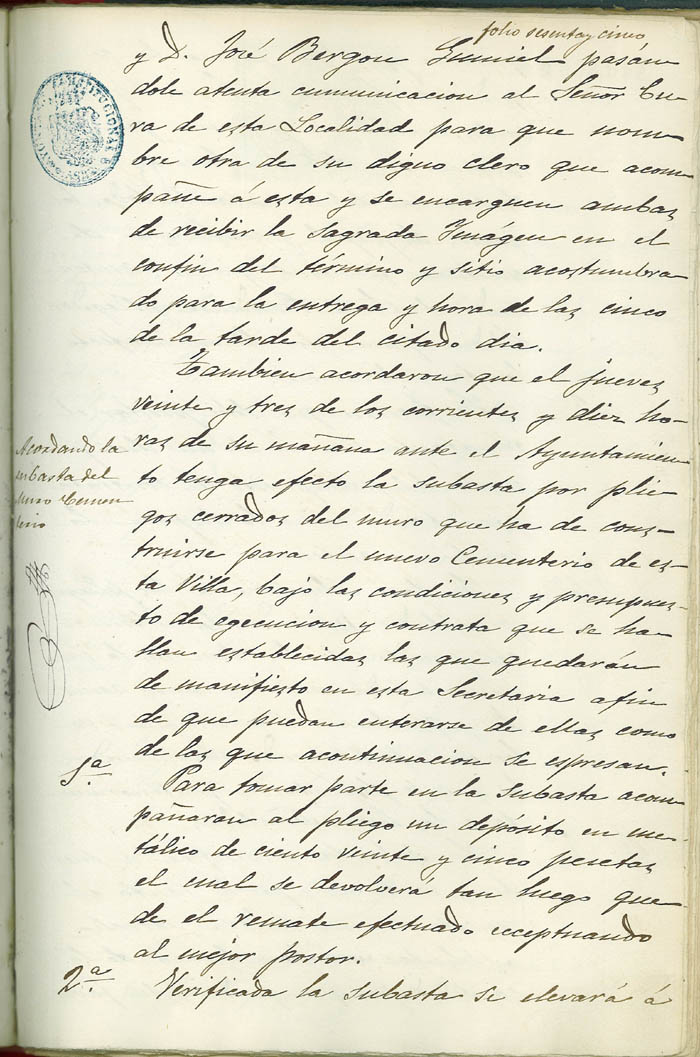 folio sesenta y cinco
y D. José Bergon Gumiel pasán
dole atenta cumunicacion al Señor Cu-
ra de esta Localidad para que nom-
bre otra de su digno clero que acom
pañe á esta y se encarguen ambas
de recibir la Sagrada Ymágen en el
confin del término y sitio acostumbra-
do para la entrega y hora de las cinco
de la tarde del citado dia.
Tambien acordaron que el jueves
veinte y tres de los corrientes y diez ho-
ras de su mañana ante el Ayuntamien
to tenga efecto la subasta por plie-
gos cerrados del muro que ha de cons-
truirse para el nuevo Cementerio de es-
ta Villa, bajo las condiciones y presupues-
to de egecucion y contrata que se ha-
llan establecidas las que quedarán
de manifiesto en esta Secretaria afin
de que puedan enterarse de ellas como
de las que acontinuacion se espresan.
Acordando la
subasta del
muro Cemen
terio
1ª
Para tomar parte en la subasta acom-
pañaran al pliego un depósito en me-
tálico de ciento veinte y cinco pesetas
el cual se devolverá tan luego que-
de el remate efectuado eceptuando
al mejor postor.
2ª
Verificada la subasta se elevará á